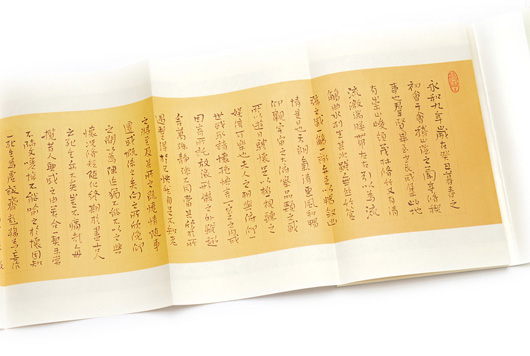 永和九年歲在癸丑暮春之
初會于會稽山陰之蘭亭脩禊
事也群賢畢至少長咸集此地
有崇山峻領茂林脩竹又有清
流激湍暎帶左右引以為流
觴曲水列坐其次雖無絲竹管
弦之盛一觴一詠亦足以暢敘幽
情是日也天朗氣清惠風和暢
仰觀宇宙之大俯察品類之盛
所以遊目騁懷足以極視聽之
娛信可樂也夫人之相與俯仰一
世或取諸懷抱悟言一室之內或
因寄所託放浪形骸之外雖趣
舍萬殊靜躁不同當其欣於所
遇暫得於己快然自足不知老
之將至及其所之既惓情隨事
遷感慨係之矣向之所欣俛仰
之間以為陳迹猶不能不以之興
懷況脩短隨化終期於盡古人
云死生亦大矣豈不痛哉每
攬昔人興感之由若合一契未嘗
不臨文嗟悼不能喻之於懷固知
一死生為虛誕齊彭殤為妄作